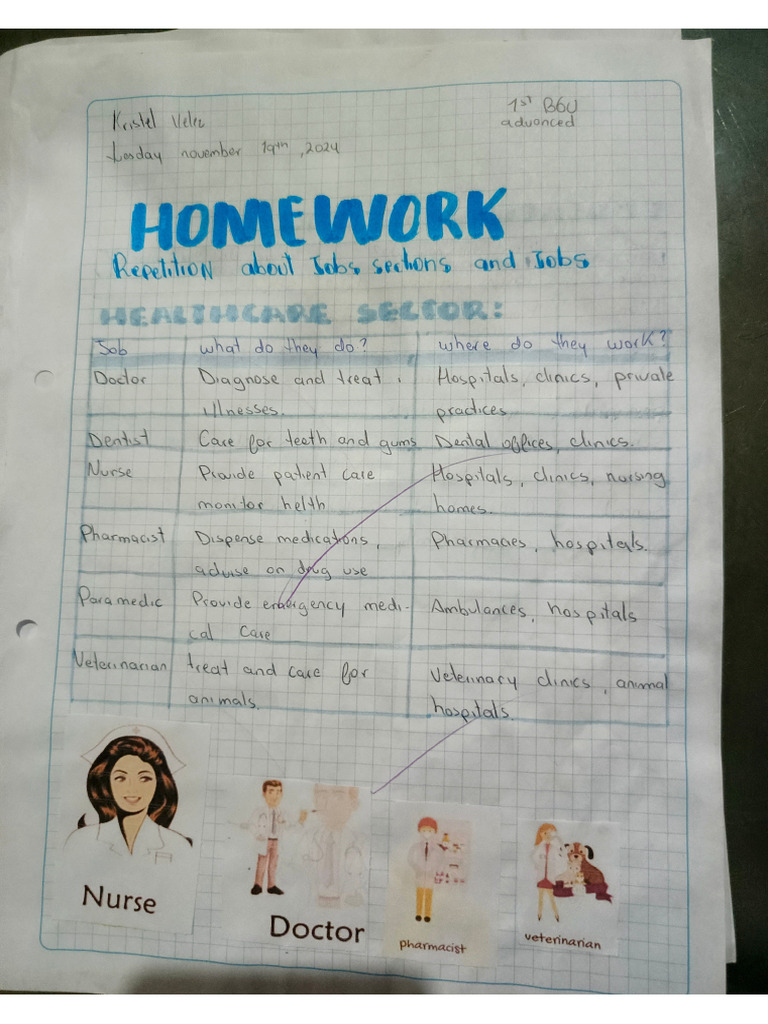 Kristel Velez
1st BGU
advanced
tusday november 19th, 2024
HOMEWORK
Repetition about Jobs sections and Jobs
HEALTHCARE SECTOR:
Job what do they do? where do they work?
Doctor Diagnose and treat Hospitals, clinics, private
illnesses. practices
Dentist Care for teeth and gums Dental offices, clinics.
Nurse Provide patient care Hospitals, clinics, nursing
monitor helth homes.
Pharmacist Dispense medications, Pharmacies, hospitals.
advise on drug use
Paramedic Provide emergency medi- Ambulances, hospitals
cal care
Veterinarian treat and care for Veterinary clinics, animal
animals. hospitals.
Nurse
Doctor
pharmacist
veterinarian